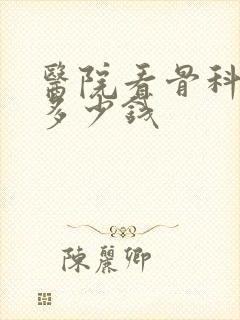 醫院看骨科
多少錢
陳麗卿